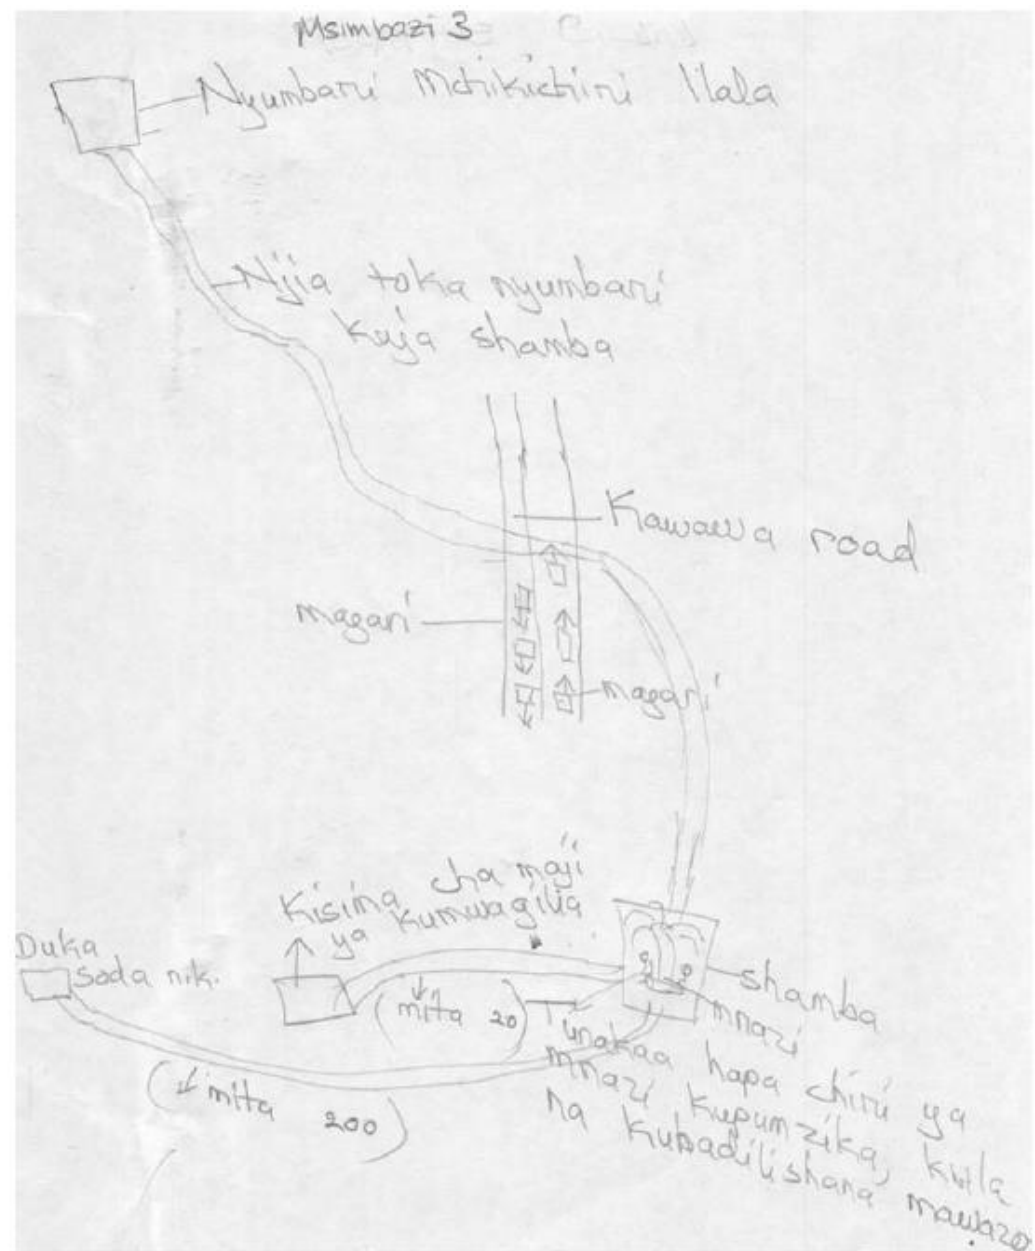 Msimbazi 3
Nyumbani Mchikichini Ilala
Njia toka nyumbani
kuja shamba
Kawawa road
magari
magari
Kisima cha maji
ya kumwagilia
Duka
Soda n.k.
shamba
mnazi
(mita 20)
Tunakaa hapa chini ya
mnazi kupumzika, kula
na kubadilishana mawazo
(mita 200)